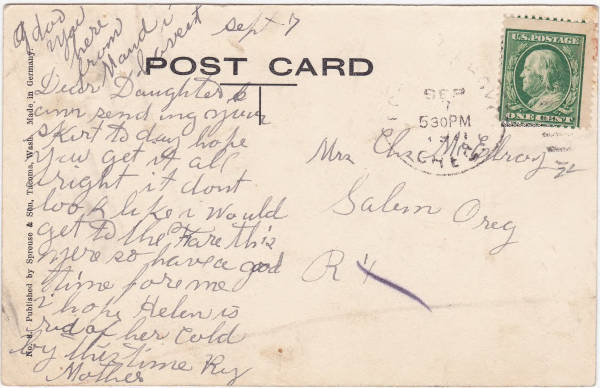 Sept 7
o dad
you
here
from
Maud i
havent
No. 4. Published by Sprouse & Son, Tacoma, Wash. Made in Germany.
POST CARD
Dear Daughter
am sending your
skirt to day hope
you get it all
right it dont
look like i would
get to the Fare this
yere so have a good
time for me
i hope Helen is
rid of her cold
by this time
Mother
U.S. POSTAGE
ONE CENT
SEP
7
530PM
Mrs Chas
Salem Oreg
R